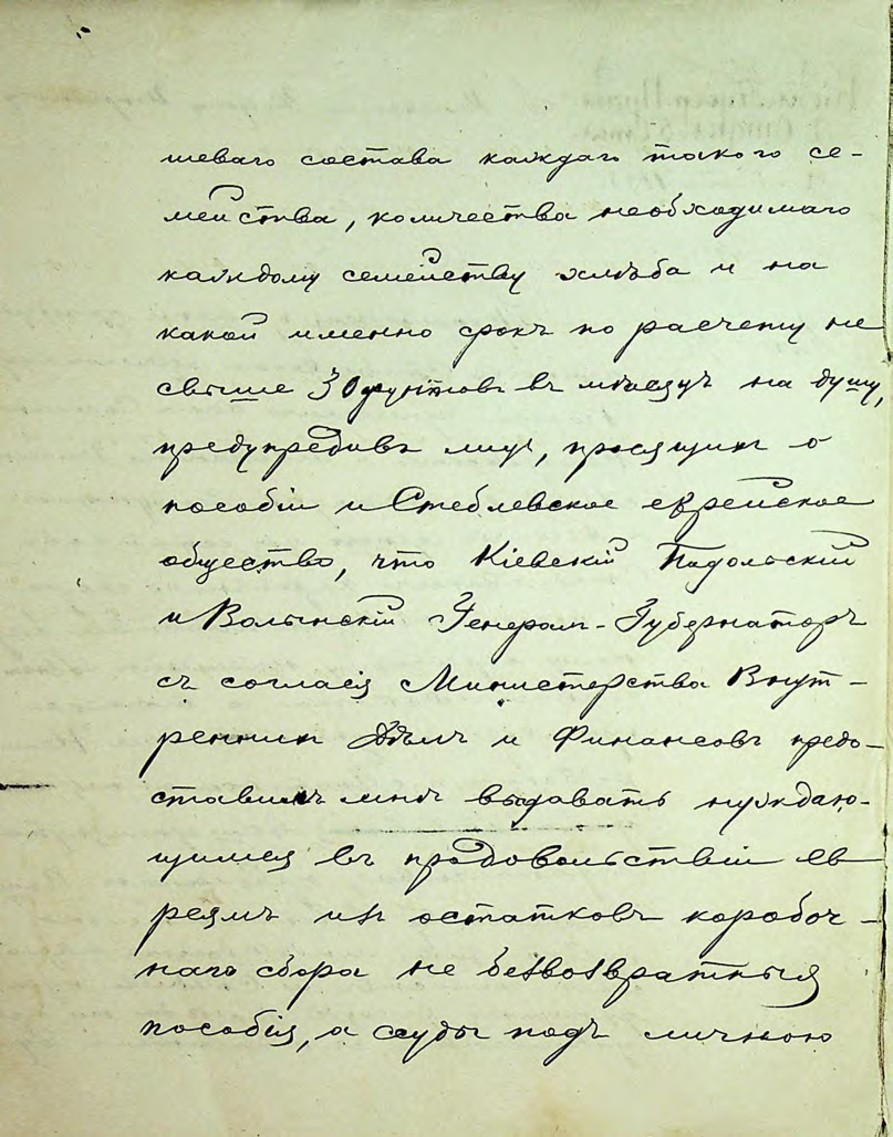 шеваго состава каждаго такого се-
мейства, количества необходимаго
каждому семейству хлѣба и на
какой именно срокъ по расчету не
свыше 30 фунтовъ въ мѣсяцъ на душу,
предупредивъ лицъ, просящихъ о
пособіи и Стеблевское еврейское
общество, что Кіевскій Подольскій
и Волынскій Генералъ-Губернаторъ
съ согласія Министерства Внут-
реннихъ Дѣлъ и Финансовъ предо-
ставилъ мнѣ выдавать нуждаю-
щимся въ продовольствіи ев
реямъ изъ остатковъ коробоч-
наго сбора не безвозвратныя
пособія, а ссуды подъ личною